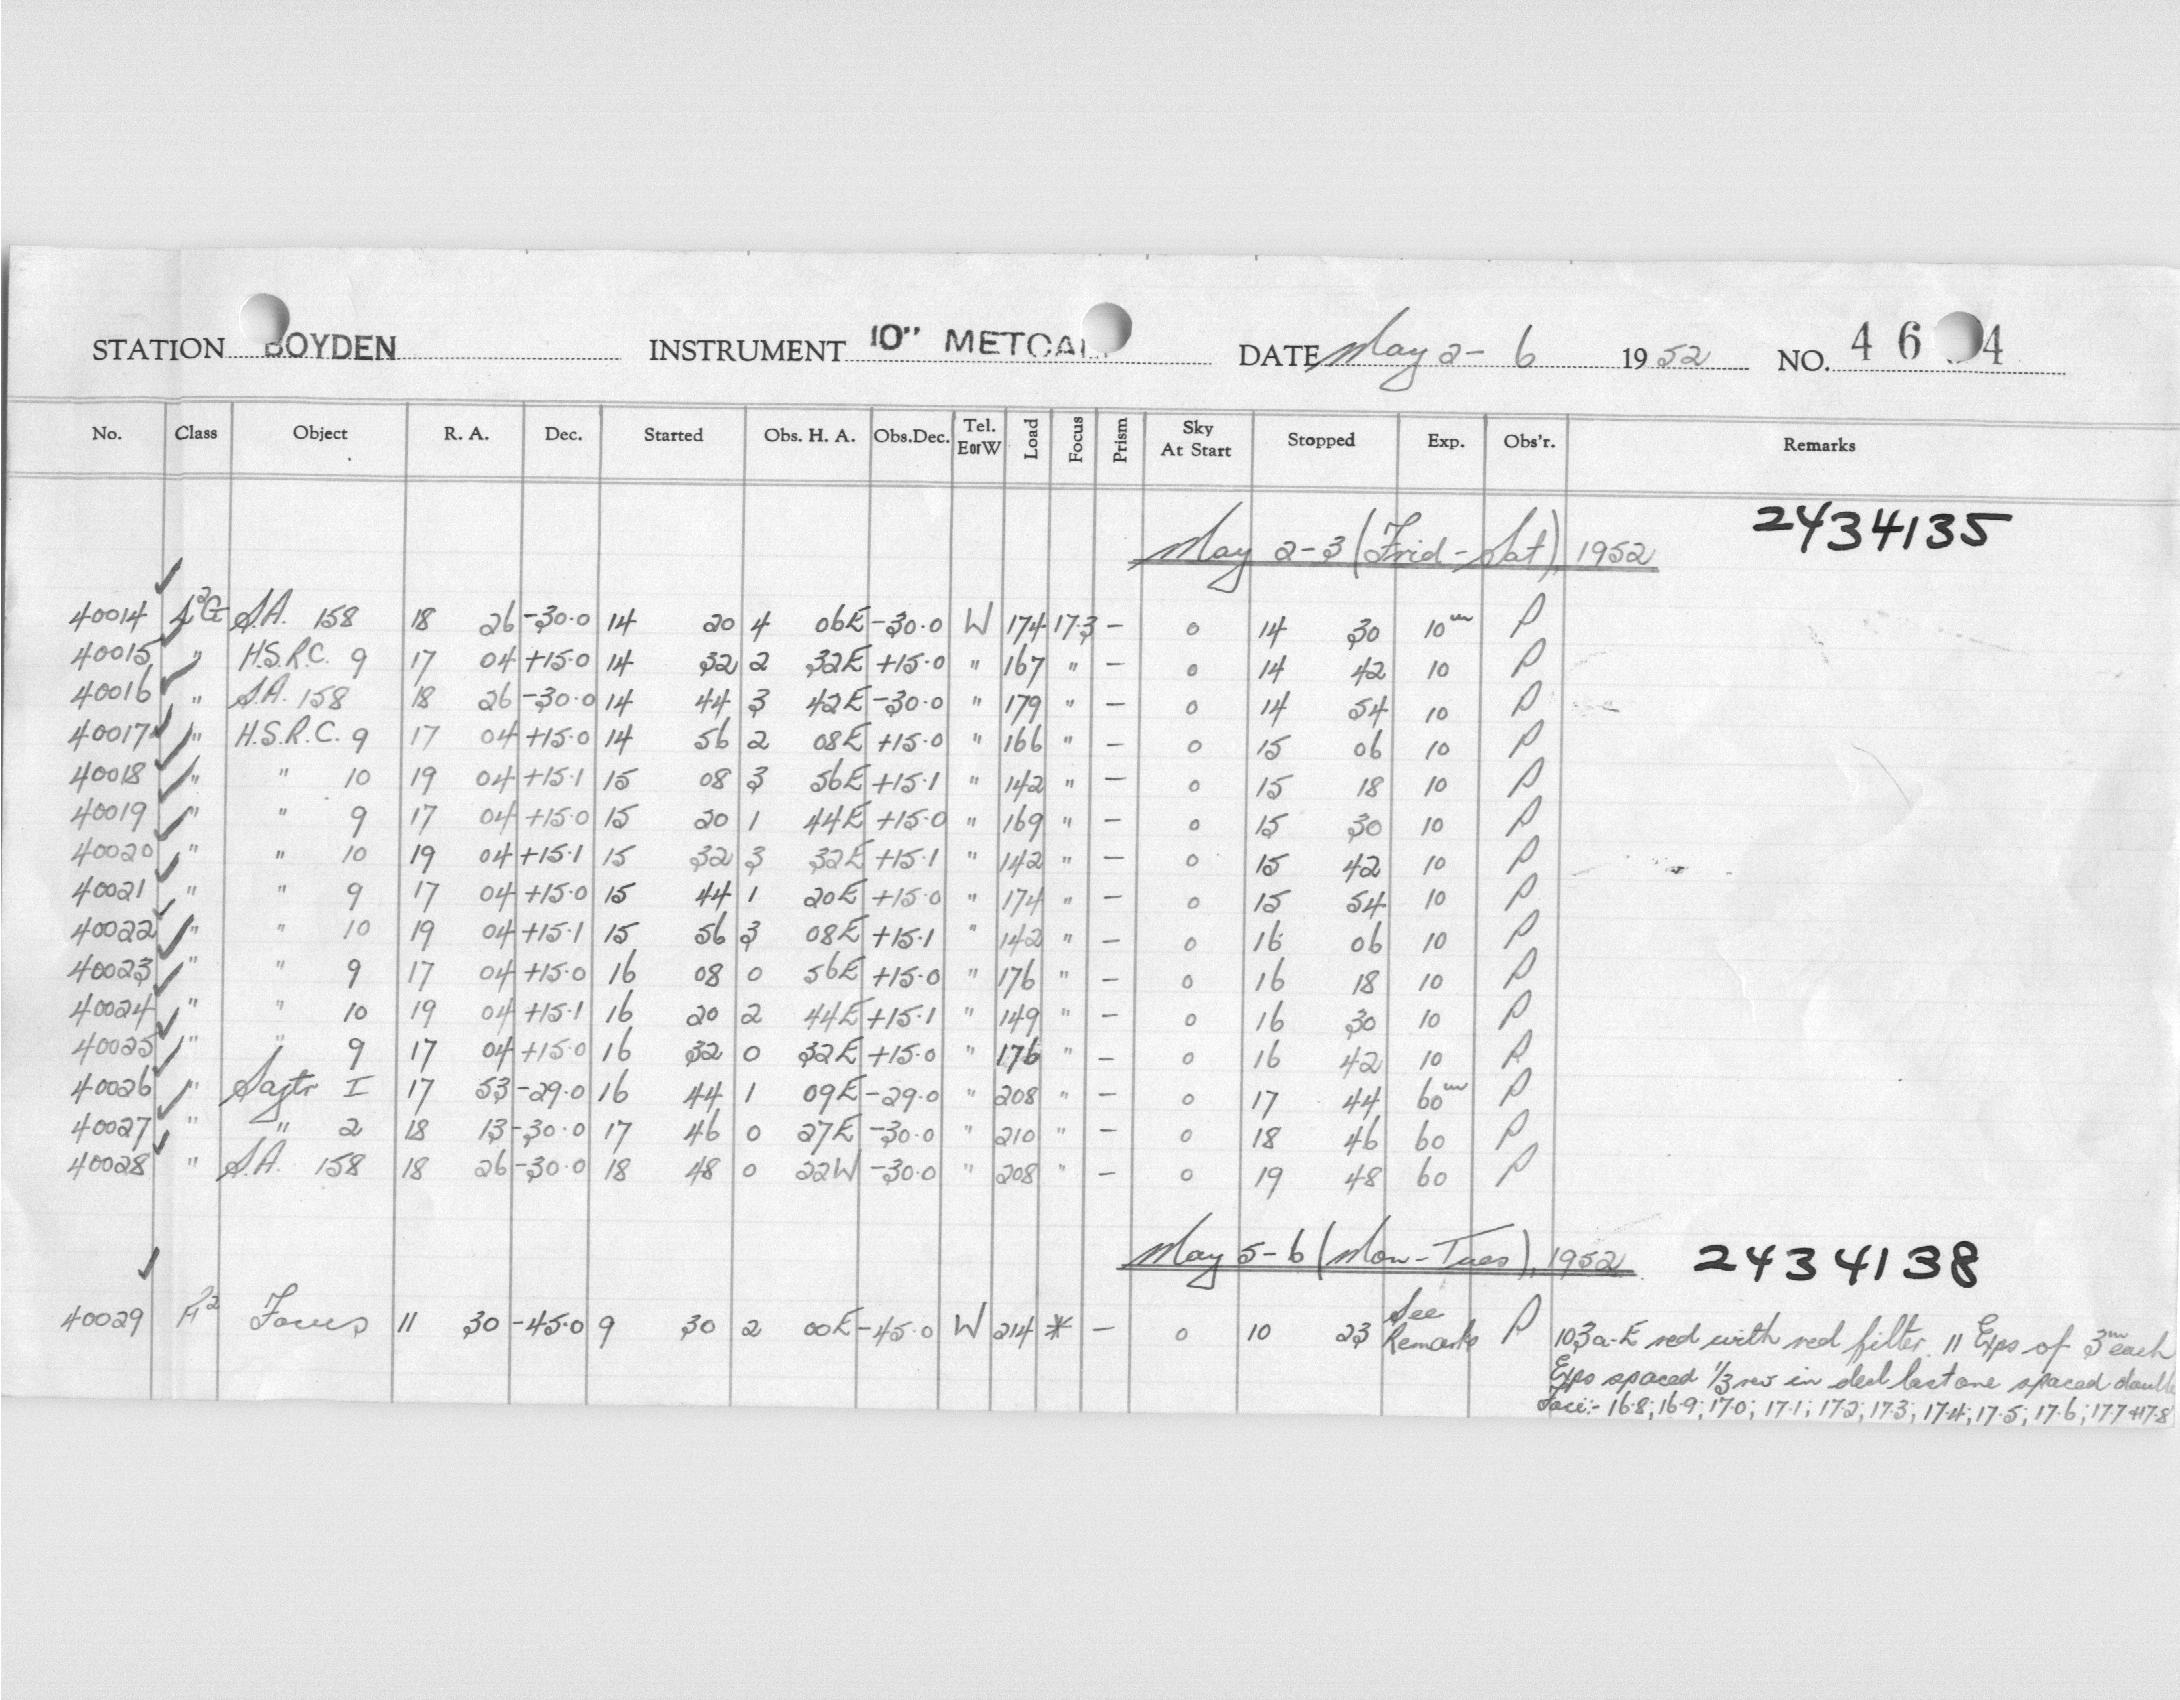 STATION BOYDEN INSTRUMENT 10" METCALF DATE May 2-6 1952 NO. 46 4
No. Class Object R. A. Dec. Started Obs. H. A. Obs.Dec. Tel. EorW Load Focus Prism Sky At Start Stopped Exp. Obs'r. Remarks
May 2-3 (Frid-Sat), 1952 2434135
40014 S.A. 158 18 26 -30.0 14 20 4 06E -30.0 W 174 17.3 - 0 14 30 10m P
40015 " H.S.R.C. 9 17 04 +15.0 14 32 2 32E +15.0 " 167 " - 0 14 42 10 P
40016 " S.A. 158 18 26 -30.0 14 44 3 42E -30.0 " 179 " - 0 14 54 10 P
40017 " H.S.R.C. 9 17 04 +15.0 14 56 2 08E +15.0 " 166 " - 0 15 06 10 P
40018 " " 10 19 04 +15.1 15 08 3 56E +15.1 " 142 " - 0 15 18 10 P
40019 " " 9 17 04 +15.0 15 20 1 44E +15.0 " 169 " - 0 15 30 10 P
40020 " " 10 19 04 +15.1 15 32 3 32E +15.1 " 142 " - 0 15 42 10 P
40021 " " 9 17 04 +15.0 15 44 1 20E +15.0 " 174 " - 0 15 54 10 P
40022 " " 10 19 04 +15.1 15 56 3 08E +15.1 " 142 " - 0 16 06 10 P
40023 " " 9 17 04 +15.0 16 08 0 56E +15.0 " 176 " - 0 16 18 10 P
40024 " " 10 19 04 +15.1 16 20 2 44E +15.1 " 149 " - 0 16 30 10 P
40025 " " 9 17 04 +15.0 16 32 0 32E +15.0 " 176 " - 0 16 42 10 P
40026 " Sagtr I 17 53 -29.0 16 44 1 09E -29.0 " 208 " - 0 17 44 60m P
40027 " " 2 18 13 -30.0 17 46 0 27E -30.0 " 210 " - 0 18 46 60 P
40028 " S.A. 158 18 26 -30.0 18 48 0 22W -30.0 " 208 " - 0 19 48 60 P
May 5-6 (Mon-Tues), 1952 2434138
40029 Focus 11 30 -45.0 9 30 2 00E -45.0 W 214 * - 0 10 23 See Remarks P 103a-E red with red filter. 11 Exps of 3m each
Exps spaced 1/3 rev in decl last one spaced double
Foci:- 16.8; 16.9; 17.0; 17.1; 17.2; 17.3; 17.4; 17.5; 17.6; 17.7 + 17.8